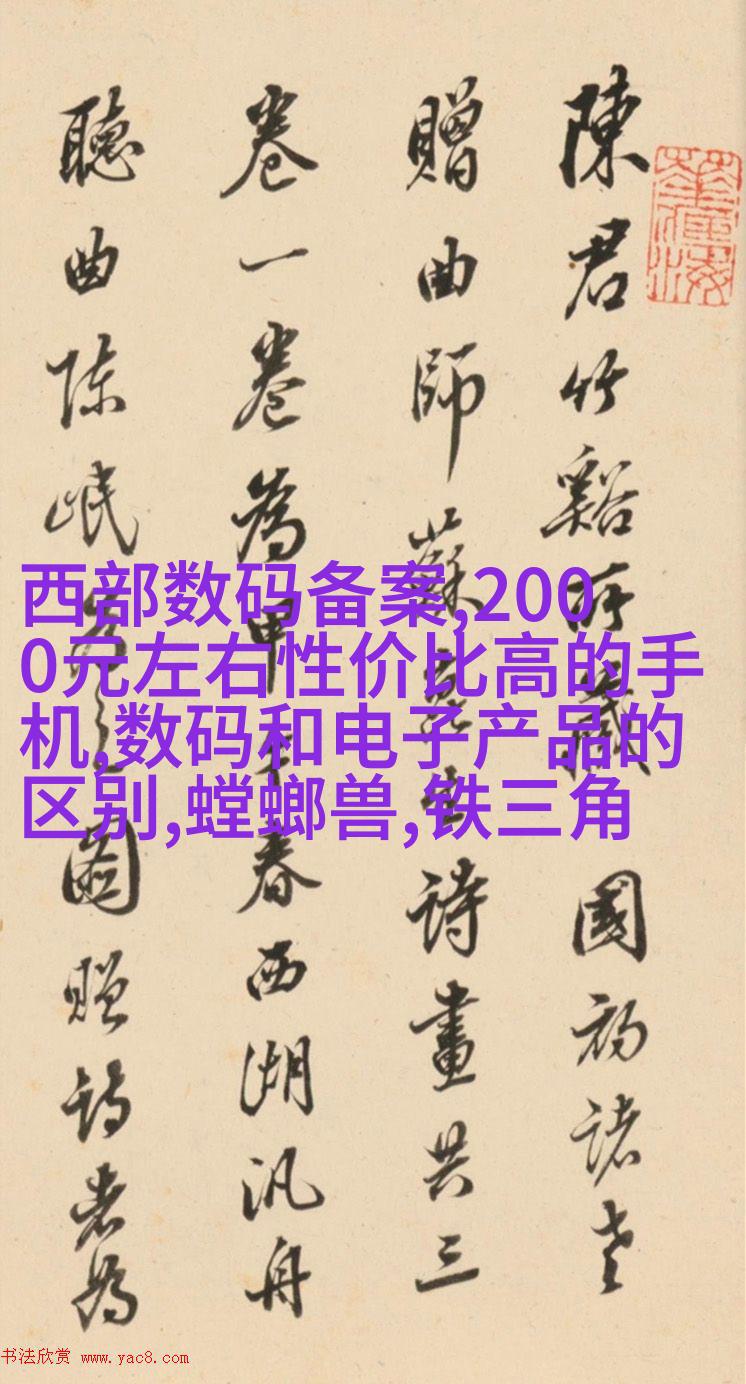 陳君竹谿所藏國初諸老
贈曲師蘇崑生詩畫共三
卷一卷為甲午春西湖汎舟
聽曲陳岷圖贈詩者為
西部数码备案,200
0元左右性价比高的手
机,数码和电子产品的
区别,螳螂兽,铁三角
书法欣赏 www.yac8.com